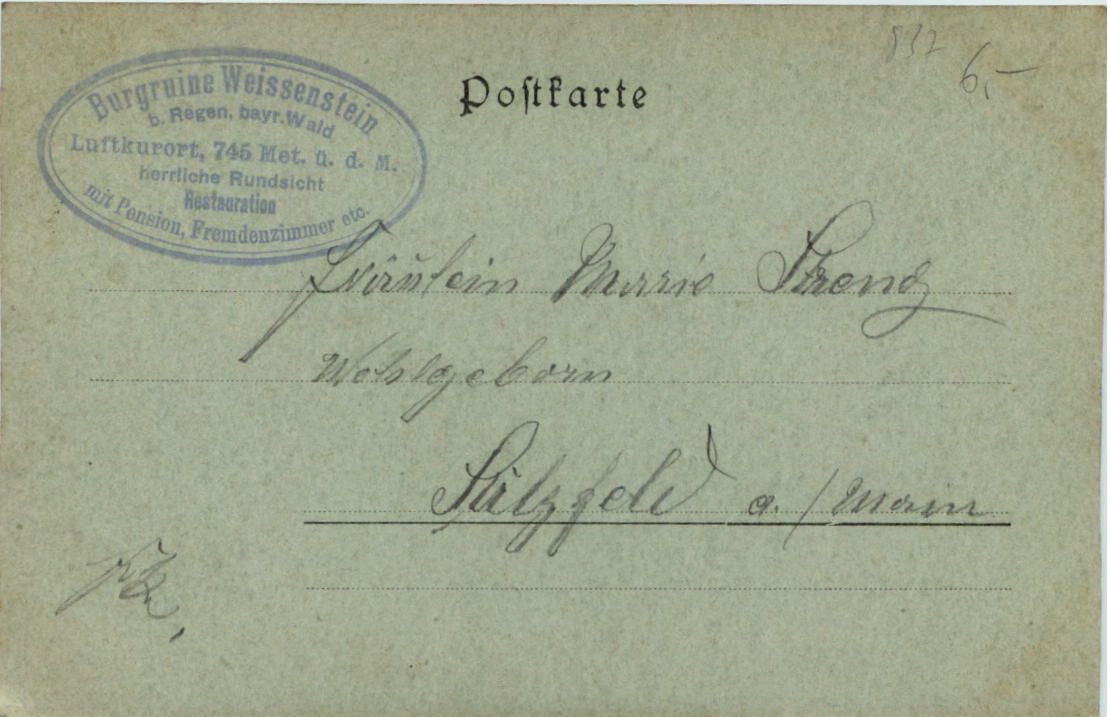 832
6,-
Postkarte
Burgruine Weissenstein
b. Regen, bayr. Wald
Luftkurort, 745 Met. ü. d. M.
herrliche Rundsicht
Restauration
mit Pension, Fremdenzimmer etc.
Fräulein Marie Streng
Wohlgeborn
Sulzfeld a./Main